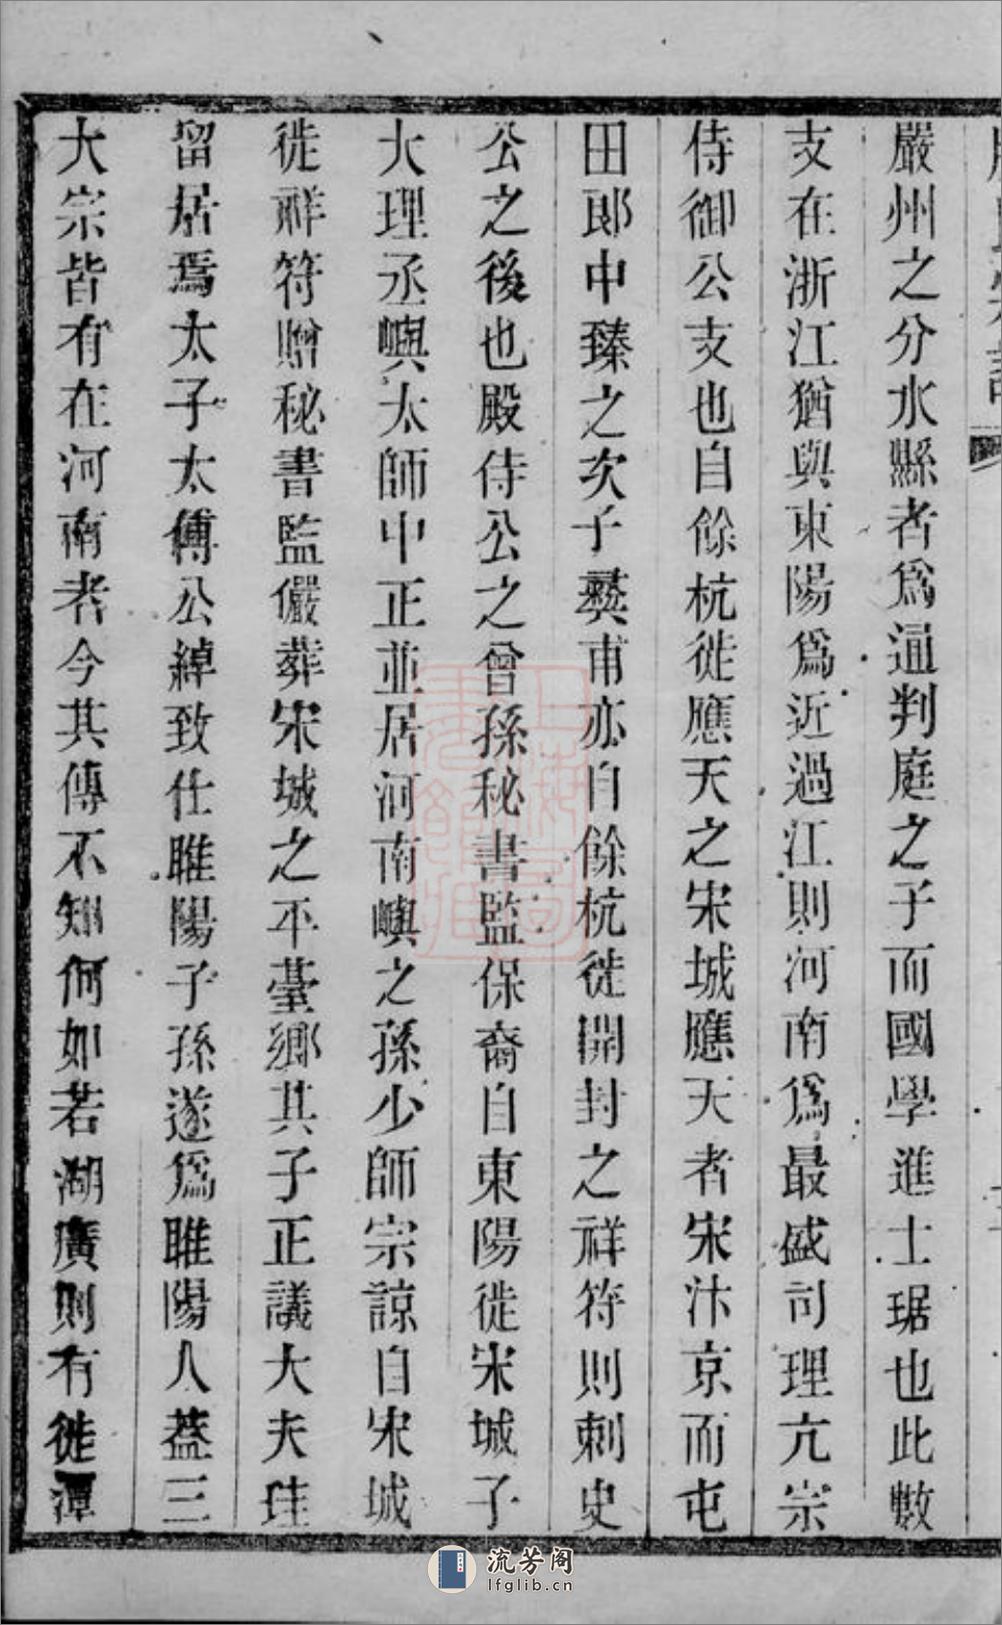 嚴州之分水縣者爲通判庭之子而國學進士琚也此數
支在浙江猶與東陽爲近過江則河南爲最盛司理亢宗
侍御公支也自餘杭徙應天之宋城應天者宋汴京而屯
田郞中臻之次子彝甫亦自餘杭徙開封之祥符則刺史
公之後也殿侍公之曾孫秘書監保裔自東陽徙宋城子
大理丞嶼太師中正並居河南嶼之孫少師宗諒自宋城
徙祥符贈秘書監儼葬宋城之平臺鄉其子正議大夫珪
留居焉太子太傅公綽致仕睢陽子孫遂爲睢陽人葢三
大宗皆有在河南者今其傳不知何如若湖廣則有徙潭
流芳阁
lfglib.cn